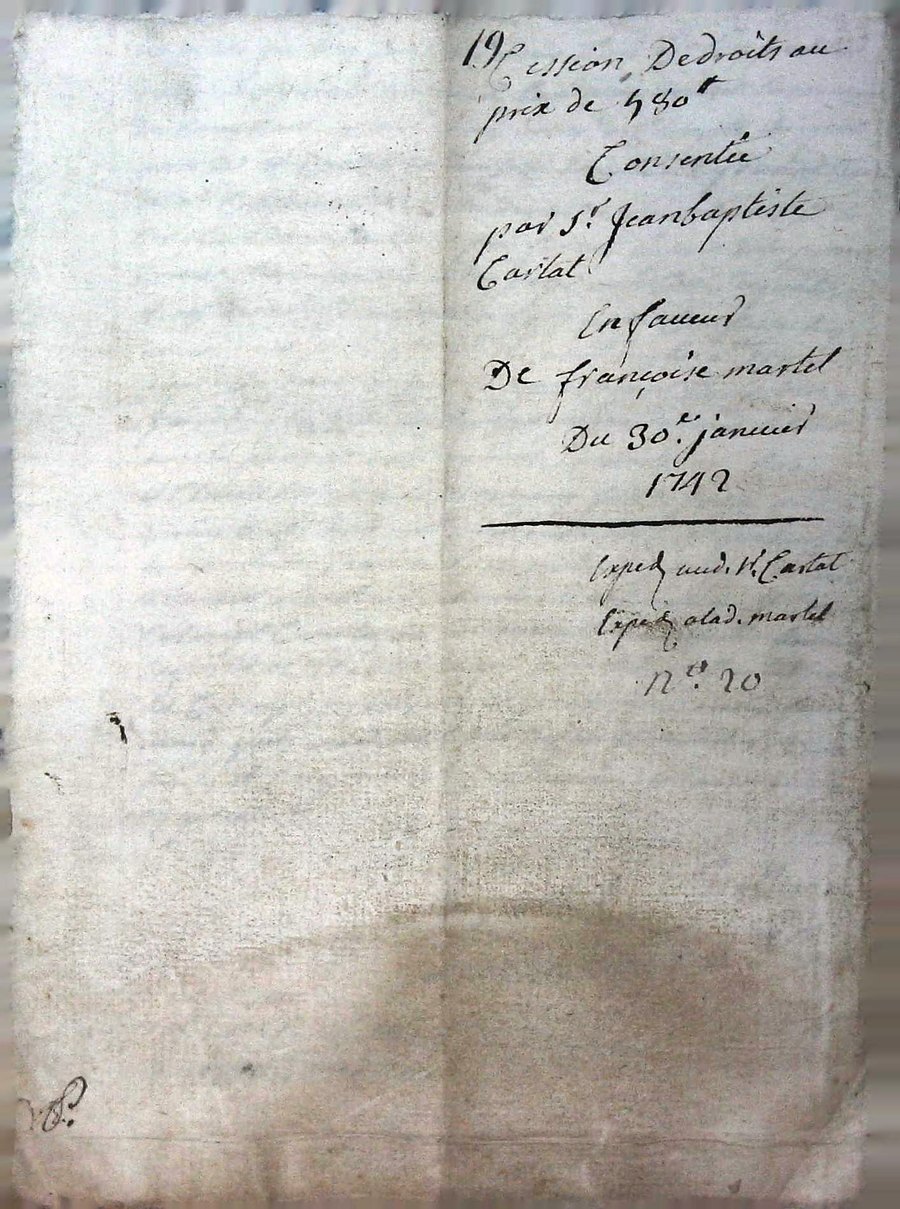 19 Cession De droits au
prix de 480 ₶
Consentie
par Sr. Jean baptiste
Carlat
En faveur
De françoise martel
Du 30e. janvier
1742
Exped aud. Sr. Carlat
Exped alad. martel
no. 20